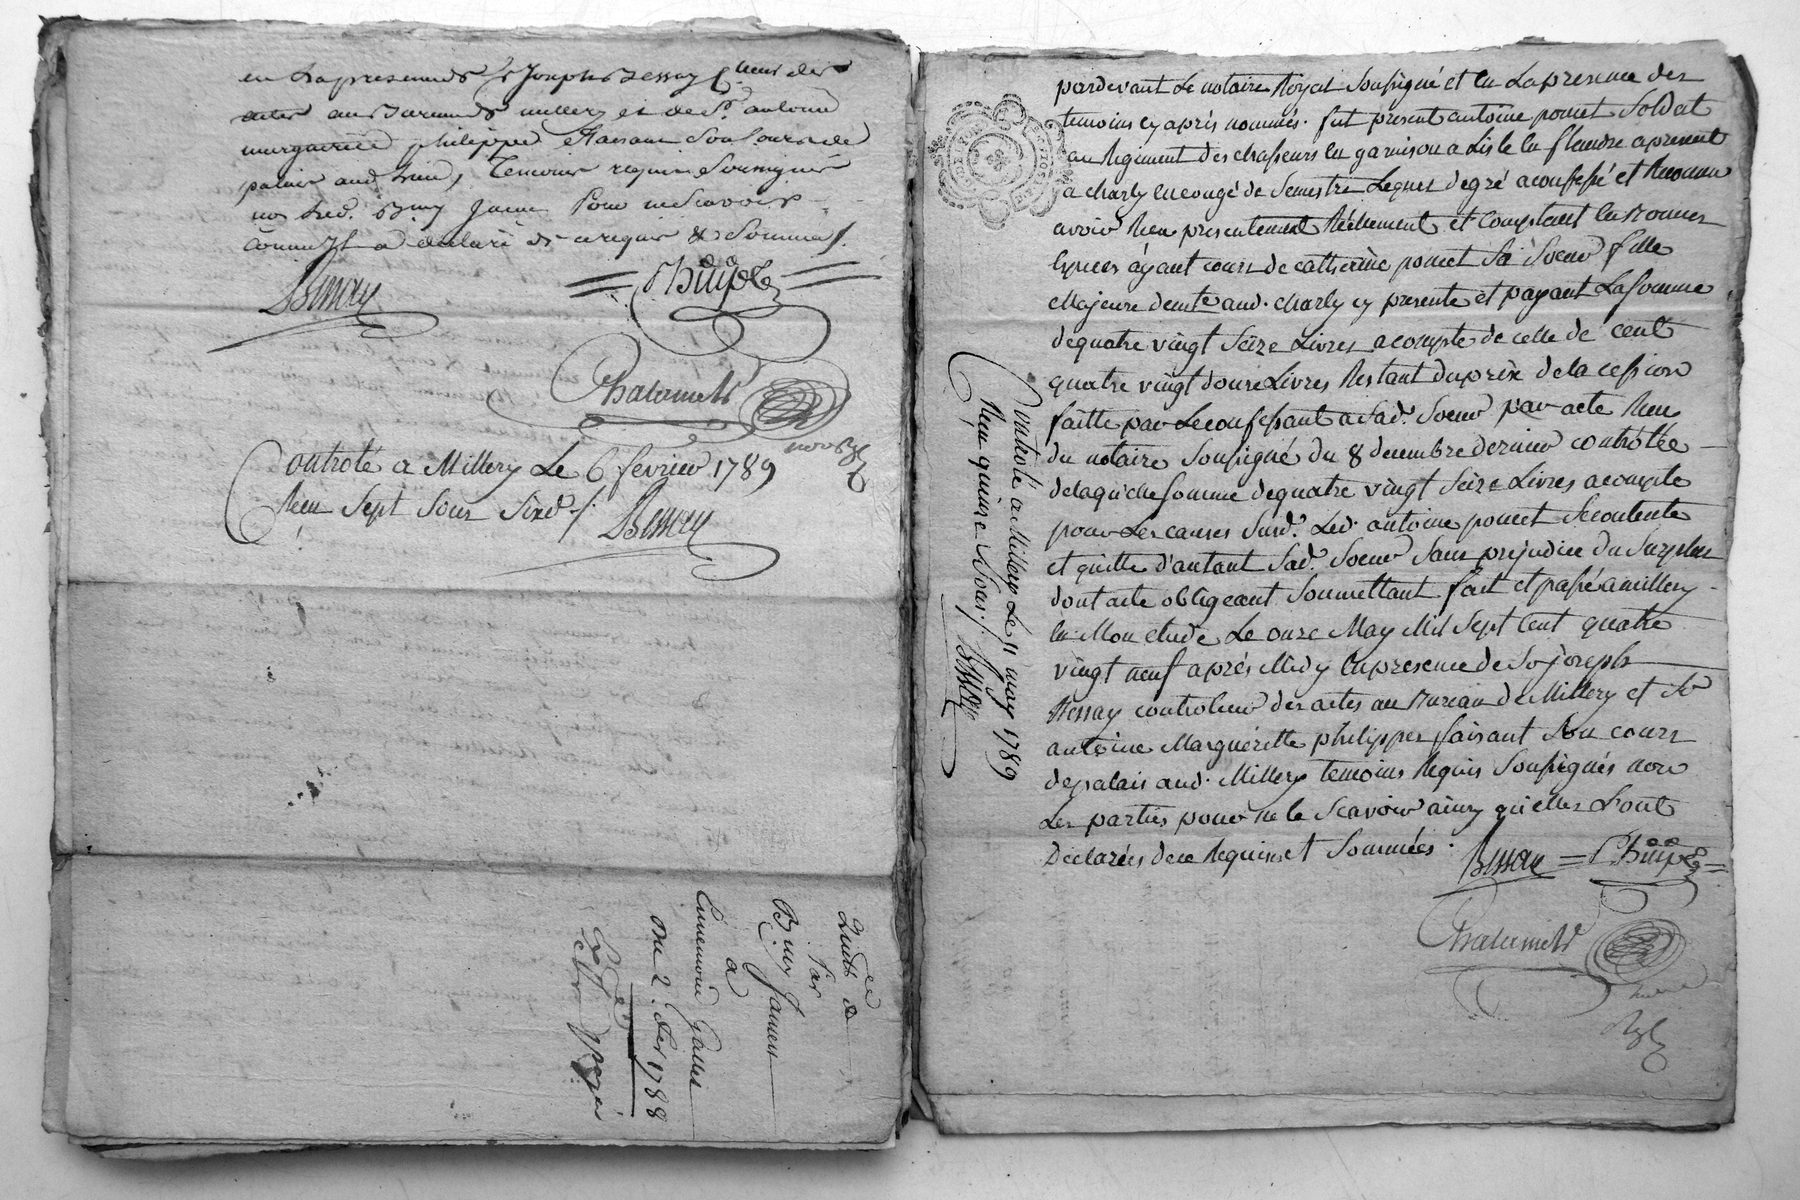 en la presence de Sr Joseph Bessay Coleur des
actes au Bureau de millery et de Sr. antoine
margueritte philippe faisant son cours de
palais aud. lieu, temoins requis soussignés
non led. Bruy Jame pour ne scavoir
comme il a declaré de ce requis & sommé /.
Bessay
Philippe
Chalamel
nore Rl
Controlé a Millery Le 6 fevrier 1789
Reçu Sept Sous Six d /.
Bessay
par
Bruy Jame
a
du 2. Xbr 1788
pardevant Le notaire Royal Soussigné et en La presence des
temoins cy après nommés. fut present antoine poncet Soldat
au Regiment des chasseurs en garnison a Lisle en flandre a present
a charly en congé de Semestre Lequel de gré a confessé et Reconnu
avoir Reçu presentement Réellement et comptant en Bonnes
Especes ayant cours de catherine poncet Sa Soeur fille
Majeure demte aud. charly cy presente et payant La Somme
de quatre vingt Seize Livres a compte de celle de cent
quatre vingt douze Livres Restant du prix de la cession
faitte par Le confessant a Sad. Soeur par acte Reçu
du notaire Soussigné du 8 decembre dernier controllée
de laquelle Somme de quatre vingt Seize Livres a compte
pour Les causes Susd. Led. antoine poncet Se contente
et quitte d'autant Sad. Soeur Sans prejudice du Surplus
dont acte obligeant Soumettant fait et passé a millery
en Mon etude Le onze May Mil Sept Cent quatre
vingt neuf après Midy En presence de Sr joseph
Bessay controleur des actes au Bureau de Millery et Sr
antoine Marguéritte philippe faisant Son cours
de palais aud. Millery temoins Requis Soussignés non
Les parties pour ne le Scavoir ainsy qu'elles L'ont
Déclarées de ce Requises et Sommées.
Bessay
Philippe
Chalamel
nore
Rl
Controlé a Millery Le 11 may 1789
Reçu quinze Sous /. Bessay